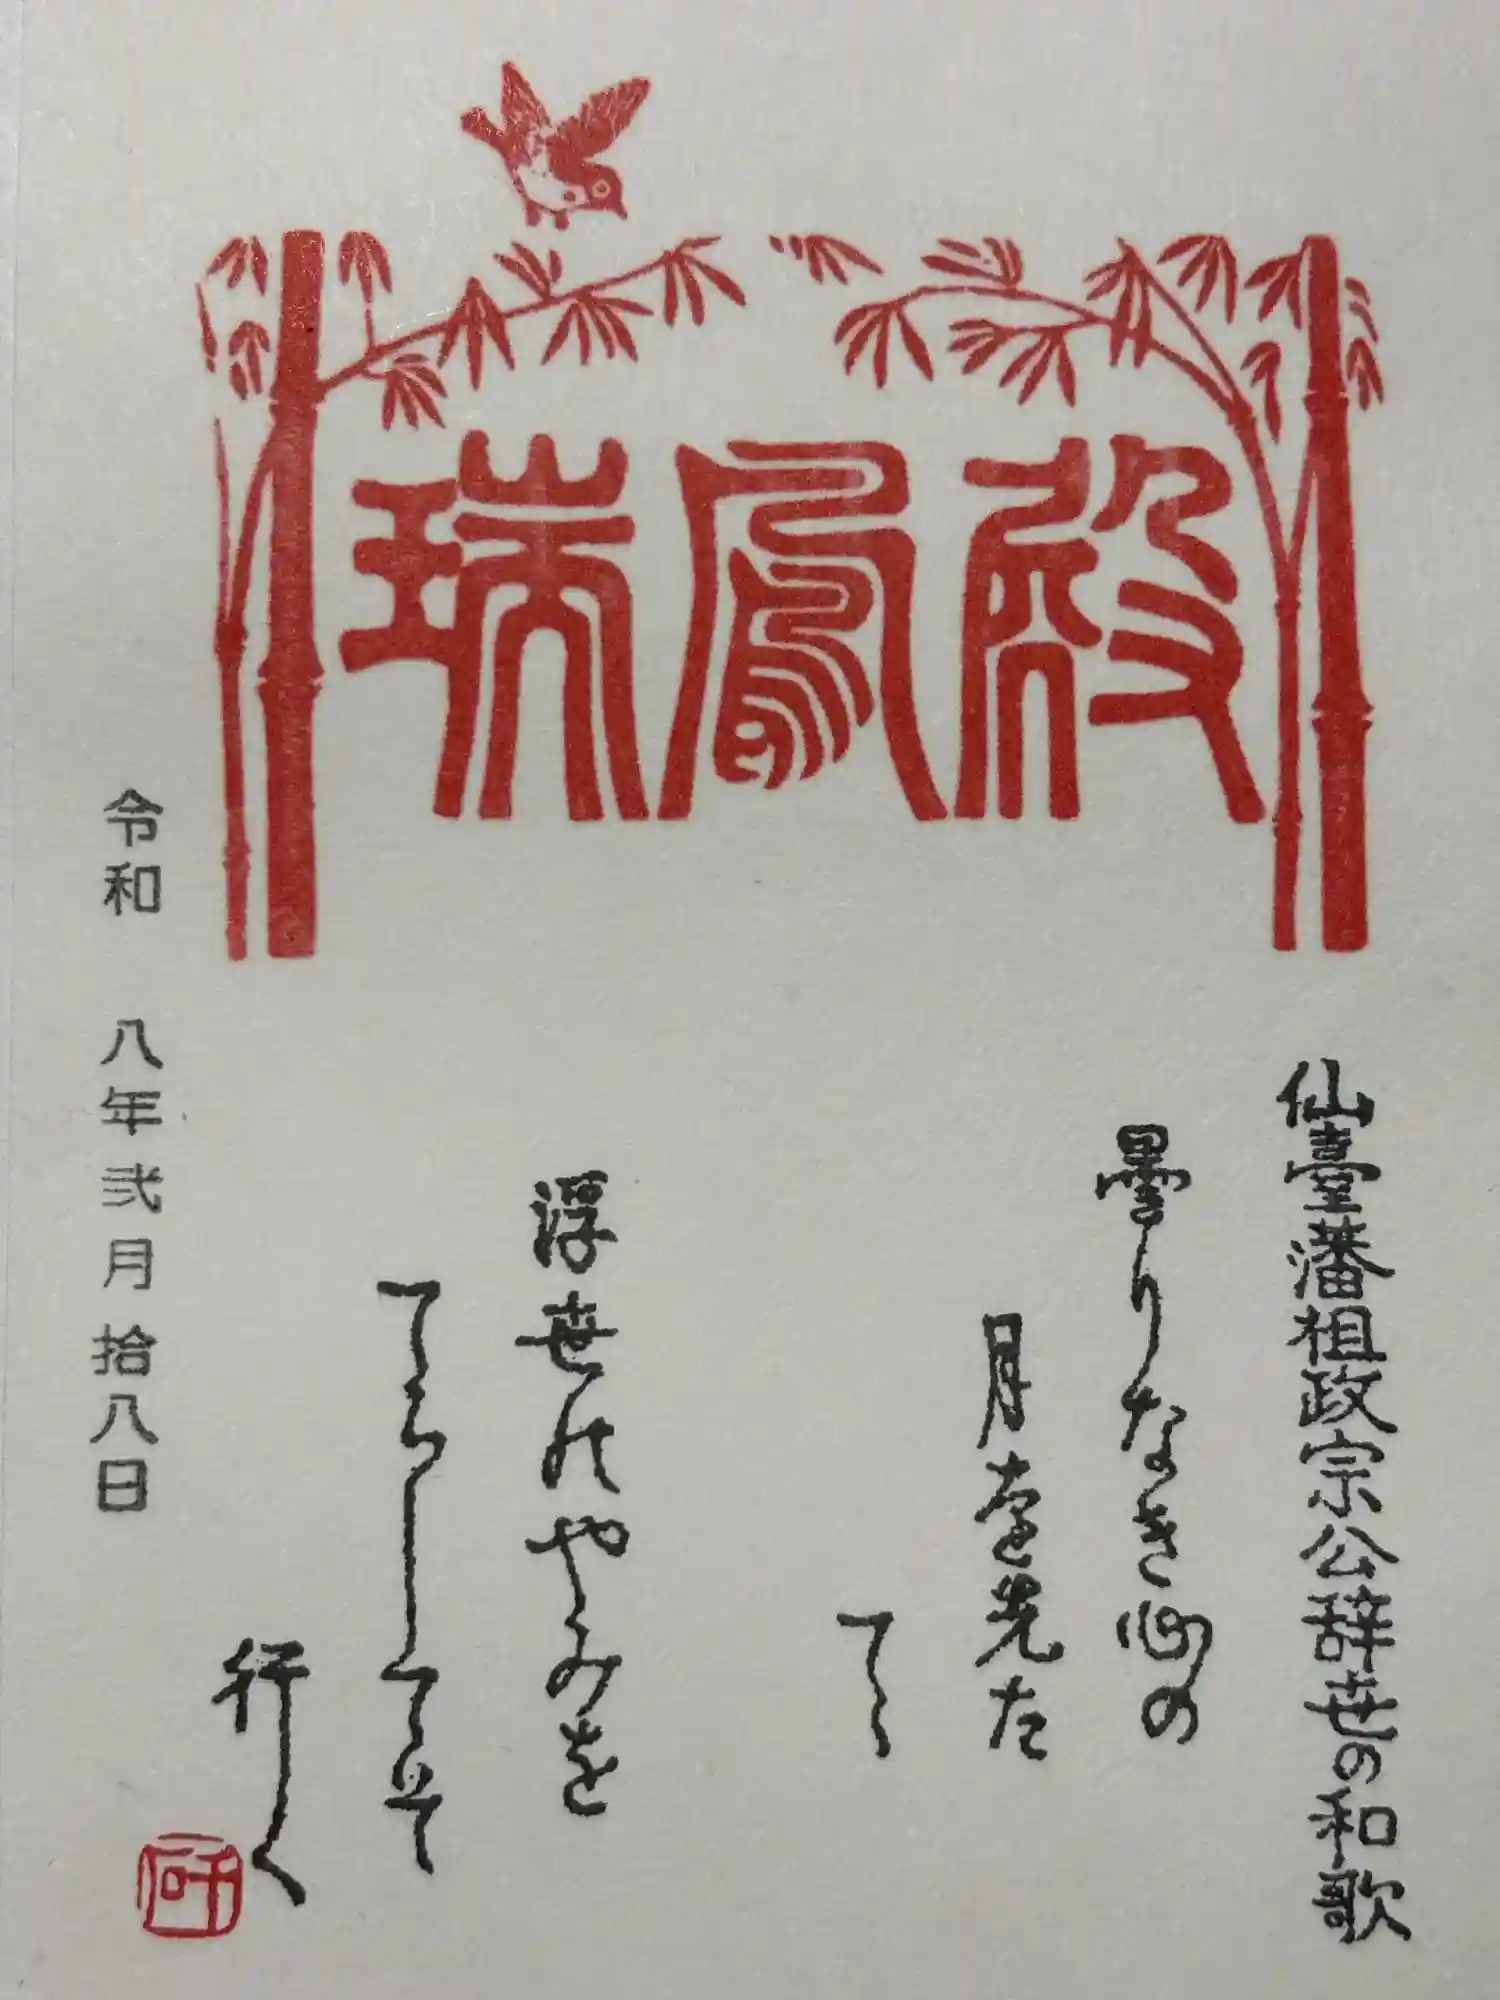 瑞鳳殿
仙臺藩祖政宗公辞世の和歌
曇りなき心の
月を先た
てゝ
浮世のやみを
てらしてそ
行く
令和 八年 弐月 拾八日